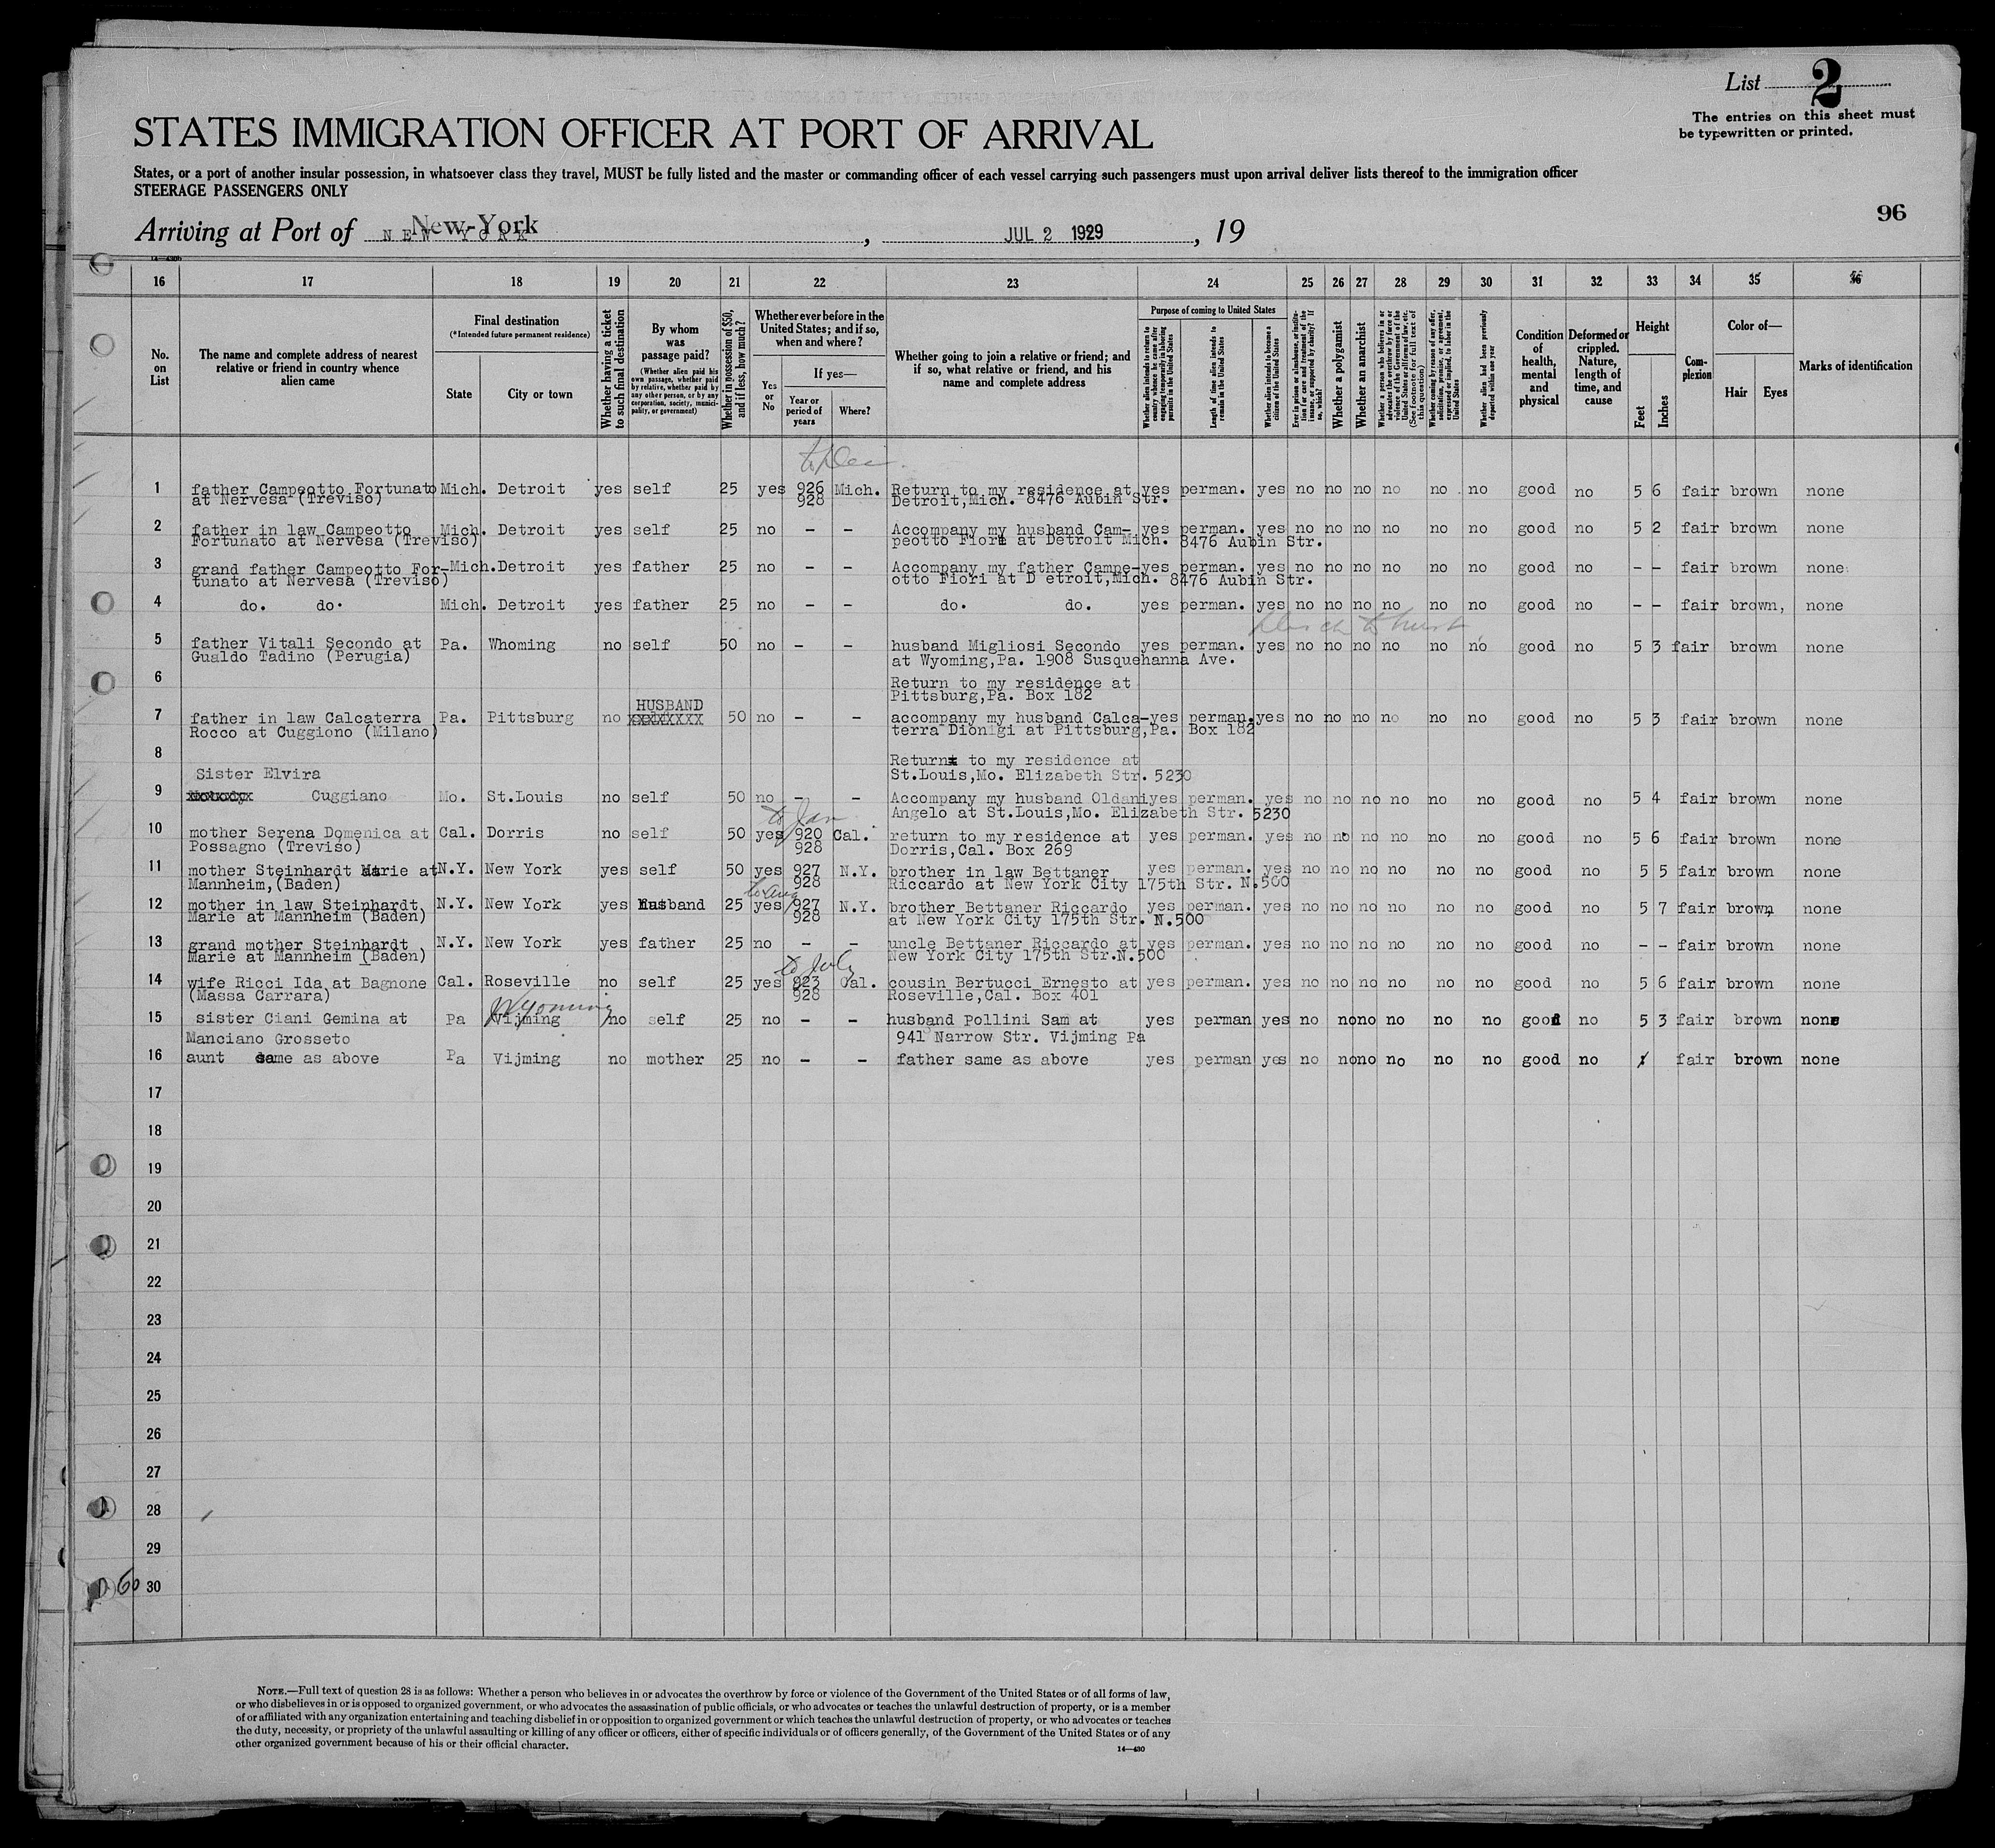 List 2
The entries on this sheet must
be typewritten or printed.
STATES IMMIGRATION OFFICER AT PORT OF ARRIVAL
States, or a port of another insular possession, in whatsoever class they travel, MUST be fully listed and the master or commanding officer of each vessel carrying such passengers must upon arrival deliver lists thereof to the immigration officer
STEERAGE PASSENGERS ONLY
96
Arriving at Port of New-York NEW YORK, JUL 2 1929, 19
16 17 18 19 20 21 22 23 24 25 26 27 28 29 30 31 32 33 34 35 36
No. on List
The name and complete address of nearest relative or friend in country whence alien came
Final destination
(*Intended future permanent residence)
State
City or town
Whether having a ticket to such final destination
By whom was passage paid?
(Whether alien paid his own passage, whether paid by relative, whether paid by any other person, or by any corporation, society, municipality, or government)
Whether in possession of $50, and if less, how much?
Whether ever before in the United States; and if so, when and where?
Yes or No
If yes—
Year or period of years
Where?
Whether going to join a relative or friend; and if so, what relative or friend, and his name and complete address
Purpose of coming to United States
Whether alien intends to return to country whence he came after engaging temporarily in laboring pursuits in the United States
Length of time alien intends to remain in the United States
Whether alien intends to become a citizen of the United States
Ever in prison or almshouse, or institution for care and treatment of the insane, or supported by charity? If so, which?
Whether a polygamist
Whether an anarchist
Whether a person who believes in or advocates the overthrow by force or violence of the Government of the United States or all forms of law, etc. (See footnote for full text of this question)
Whether coming by reason of any offer, solicitation, promise, or agreement, expressed or implied, to labor in the United States
Whether alien had been previously deported within one year
Condition of health, mental and physical
Deformed or crippled. Nature, length of time, and cause
Height
Feet
Inches
Complexion
Color of—
Hair
Eyes
Marks of identification
to Dec.
1 father Campeotto Fortunato Mich. Detroit yes self 25 yes 926 Mich. Return to my residence at yes perman. yes no no no no no no good no 5 6 fair brown none
at Nervesa (Treviso) 928 Detroit,Mich. 8476 Aubin Str.
2 father in law Campeotto Mich. Detroit yes self 25 no - - Accompany my husband Cam- yes perman. yes no no no no no no good no 5 2 fair brown none
Fortunato at Nervesa (Treviso) peotto Fiore at Detroit Mich. 8476 Aubin Str.
3 grand father Campeotto For- Mich. Detroit yes father 25 no - - Accompany my father Campe- yes perman. yes no no no no no no good no - - fair brown none
tunato at Nervesa (Treviso) otto Fiori at D etroit,Mich. 8476 Aubin Str.
4 do. do. Mich. Detroit yes father 25 no - - do. do. yes perman. yes no no no no no no good no - - fair brown, none
5 father Vitali Secondo at Pa. Whoming no self 50 no - - husband Migliosi Secondo yes perman. yes no no no no no no good no 5 3 fair brown none
Gualdo Tadino (Perugia) at Wyoming,Pa. 1908 Susquehanna Ave.
6 Return to my residence at
Pittsburg,Pa. Box 182
HUSBAND
7 father in law Calcaterra Pa. Pittsburg no xxxxxxxx 50 no - - accompany my husband Calca- yes perman. yes no no no no no no good no 5 3 fair brown none
Rocco at Cuggiono (Milano) terra Dionigi at Pittsburg,Pa. Box 182
8 Return to my residence at
Sister Elvira St.Louis,Mo. Elizabeth Str. 5230
9 Cuggiano Mo. St.Louis no self 50 no - - Accompany my husband Oldani yes perman. yes no no no no no no good no 5 4 fair brown none
to Jan Angelo at St.Louis,Mo. Elizabeth Str. 5230
10 mother Serena Domenica at Cal. Dorris no self 50 yes 920 Cal. return to my residence at yes perman. yes no no no no no no good no 5 6 fair brown none
Possagno (Treviso) 928 Dorris,Cal. Box 269
11 mother Steinhardt Marie at N.Y. New York yes self 50 yes 927 N.Y. brother in law Bettaner yes perman. yes no no no no no no good no 5 5 fair brown none
Mannheim,(Baden) 928 Riccardo at New York City 175th Str. N.500
to Aug
12 mother in law Steinhardt N.Y. New York yes husband 25 yes 927 N.Y. brother Bettaner Riccardo yes perman. yes no no no no no no good no 5 7 fair brown none
Marie at Mannheim (Baden) 928 at New York City 175th Str. N.500
13 grand mother Steinhardt N.Y. New York yes father 25 no - - uncle Bettaner Riccardo at yes perman. yes no no no no no no good no - - fair brown none
Marie at Mannheim (Baden) New York City 175th Str.N.500
to July
14 wife Ricci Ida at Bagnone Cal. Roseville no self 25 yes 923 Cal. cousin Bertucci Ernesto at yes perman. yes no no no no no no good no 5 6 fair brown none
(Massa Carrara) 928 Roseville,Cal. Box 401
Wyoming
15 sister Ciani Gemina at Pa Vijming no self 25 no - - husband Pollini Sam at yes perman yes no no no no no no good no 5 3 fair brown none
Manciano Grosseto 941 Narrow Str. Vijming Pa
16 aunt same as above Pa Vijming no mother 25 no - - father same as above yes perman yes no no no no no no good no fair brown none
17
18
19
20
21
22
23
24
25
26
27
28
29
60 30
NOTE.—Full text of question 28 is as follows: Whether a person who believes in or advocates the overthrow by force or violence of the Government of the United States or of all forms of law,
or who disbelieves in or is opposed to organized government, or who advocates the assassination of public officials, or who advocates or teaches the unlawful destruction of property, or is a member
of or affiliated with any organization entertaining and teaching disbelief in or opposition to organized government or which teaches the unlawful destruction of property, or who advocates or teaches
the duty, necessity, or propriety of the unlawful assaulting or killing of any officer or officers, either of specific individuals or of officers generally, of the Government of the United States or of any
other organized government because of his or their official character.
14—430